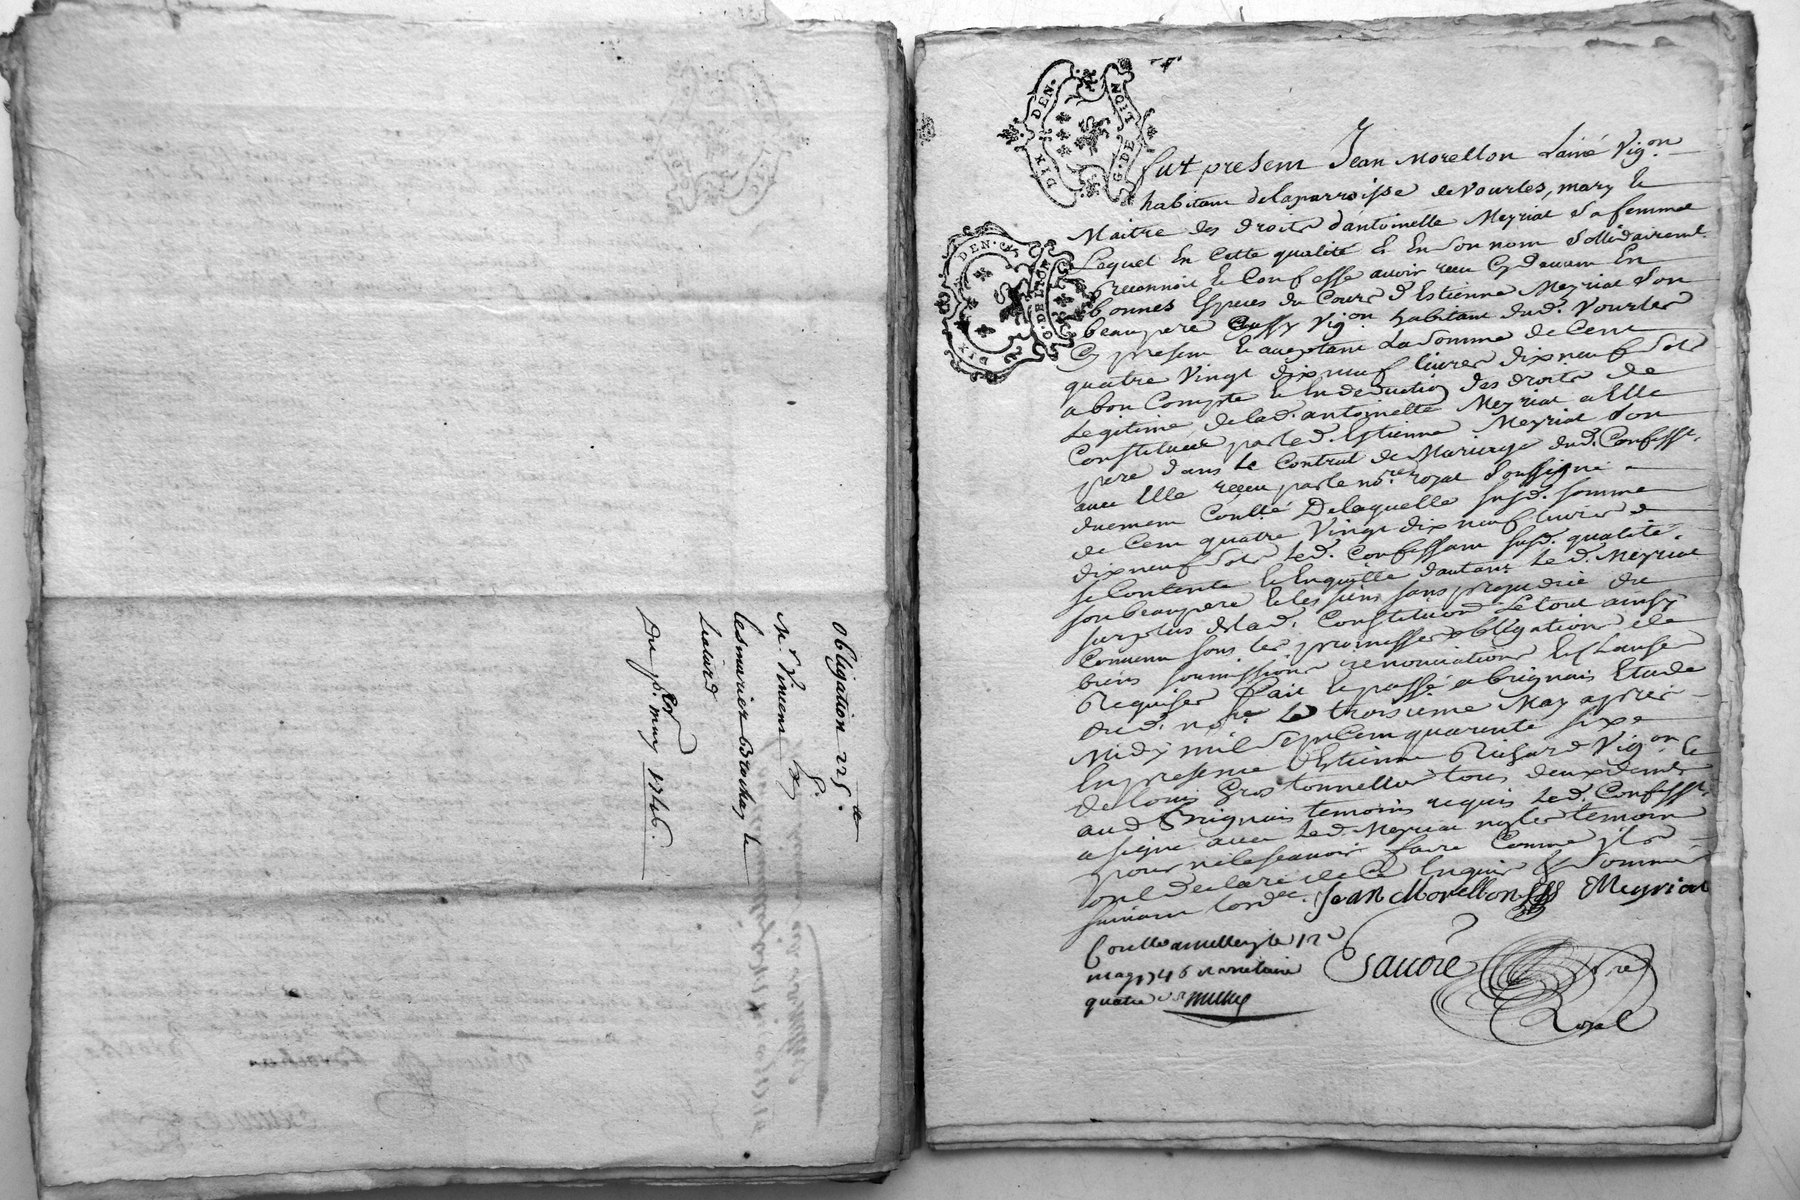 obligation 225.
Mr. Vincent
lesmurier Brochay &
Liaud
Du p.er may 1746.
DIX DEN.
G. DE LION
DIX DEN.
G. DE LION
fut present Jean Morellon Lainé Vig.on
habitant delaparroisse de Vourles, mary &
Maitre des droits d'antoinette Meyriat sa femme
Lequel en Cette qualité & En son nom Sollidairemt.
reconnoit & Confesse avoir receu Cydevant En
bonnes Especes du Cours d'Estienne Meyriat son
beaupere aussy Vig.on habitant dud. Vourles
Cy present & aceptant La Somme de Cent
quatre Vingt dix neuf livres dixneuf sols
a bon Compte & En deduction des droits de
Legitime delad. antoinette Meyriat a Elle
Constitués parled. Estienne Meyriat son
pere dans le Contrat de Mariage dud. Confesst.
avec Elle receu parle no.re royal Soussigné
duement Conllé Delaquelle susd. somme
de Cent quatre Vingt dix neuf livres &
dixneuf sols Led. Confessant susd. qualité
se Contente & Enquitte dautant Led. Meyriat
son beaupere & les siens sans prejudice du
surplus delad. Constitution Le tout ainsy
Convenu sous les promesses obligations de
biens soumissions renonciations & Clauses
Requises fait & passé a brignais Etude
dud. no.re Le troisieme May apres
Midy mil Sept Cent quarente six
En presence d'Estienne Richard Vig.on &
de louis Gros tonnellier tous deux demts.
aud. Brignais temoins requis Led. Confesst.
a signé avec Led. Meyriat non les temoins
pour ne le scavoir faire Comme ils
ont declaré de ce Enquis & Sommés
suivant lordce. Jean Morellon Meyriat
Conllé amillery le 12e
may 1746
quatre
Esauoré
n.re
Royal